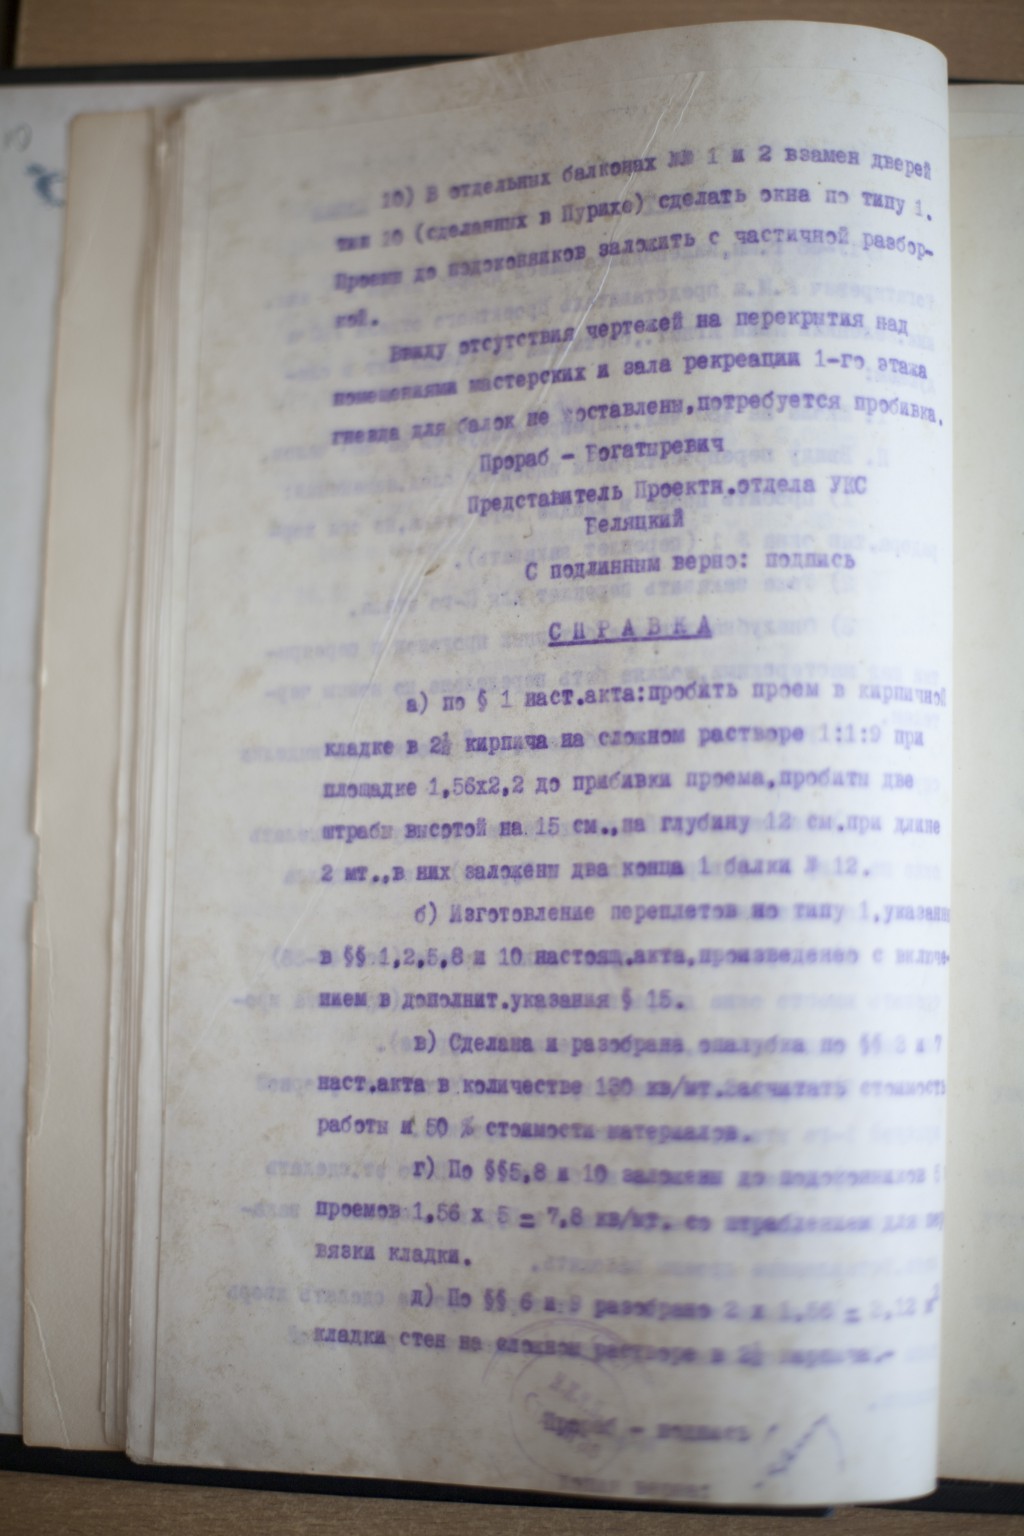 10) В отдельных балконах №№ 1 и 2 взамен дверей
тип 10 (сделанных в Пурихе) сделать окна по типу 1.
Проемы до подоконников заложить с частичной разбор-
кой.
Ввиду отсутствия чертежей на перекрытия над
помещениями мастерских и зала рекреации 1-го этажа
гнезда для балок не оставлены,потребуется пробивка.
Прораб - Богатыревич
Представитель Проектн.отдела УКС
Беляцкий
С подлинным верно: подпись
СПРАВКА
а) по § 1 наст.акта:пробить проем в кирпичной
кладке в 2½ кирпича на сложном растворе 1:1:9 при
площадке 1,56х2,2 до прибивки проема,пробиты две
штрабы высотой на 15 см.,на глубину 12 см.при длине
2 мт.,в них заложены два конца 1 балки № 12.
б) Изготовление переплетов по типу 1,указанн
в §§ 1,2,5,8 и 10 настоящ.акта,произведенео с включе-
нием в дополнит.указания § 15.
в) Сделана и разобрана опалубка по §§ 3 и 7
наст.акта в количестве 130 кв/мт.Засчитать стоимость
работы и 50 % стоимости материалов.
г) По §§5,8 и 10 заложены до подоконников 5
проемов 1,56 х 5 = 7,8 кв/мт. со штраблением для
вязки кладки.
д) По §§ 6 и 9 разобрано 2 х 1,56 = 3,12
кладки стен на сложном растворе в 2½ кирпича.-
Прораб - подпись
верна: